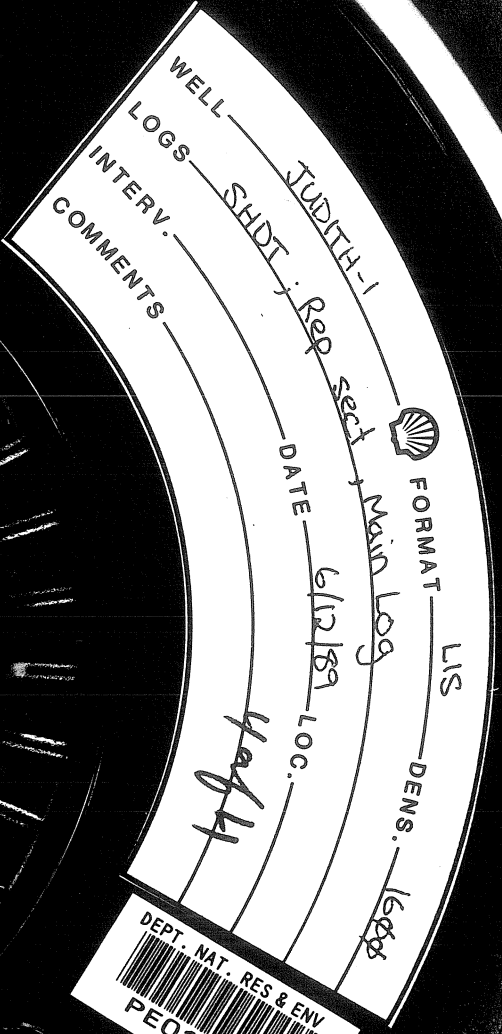 WELL JUDITH-1 FORMAT LIS DENS. 1600
LOGS SHDT ; Rep sect , Main Log
INTERV. DATE 6/12/89 LOC.
COMMENTS 4 of 4
DEPT. NAT. RES & ENV